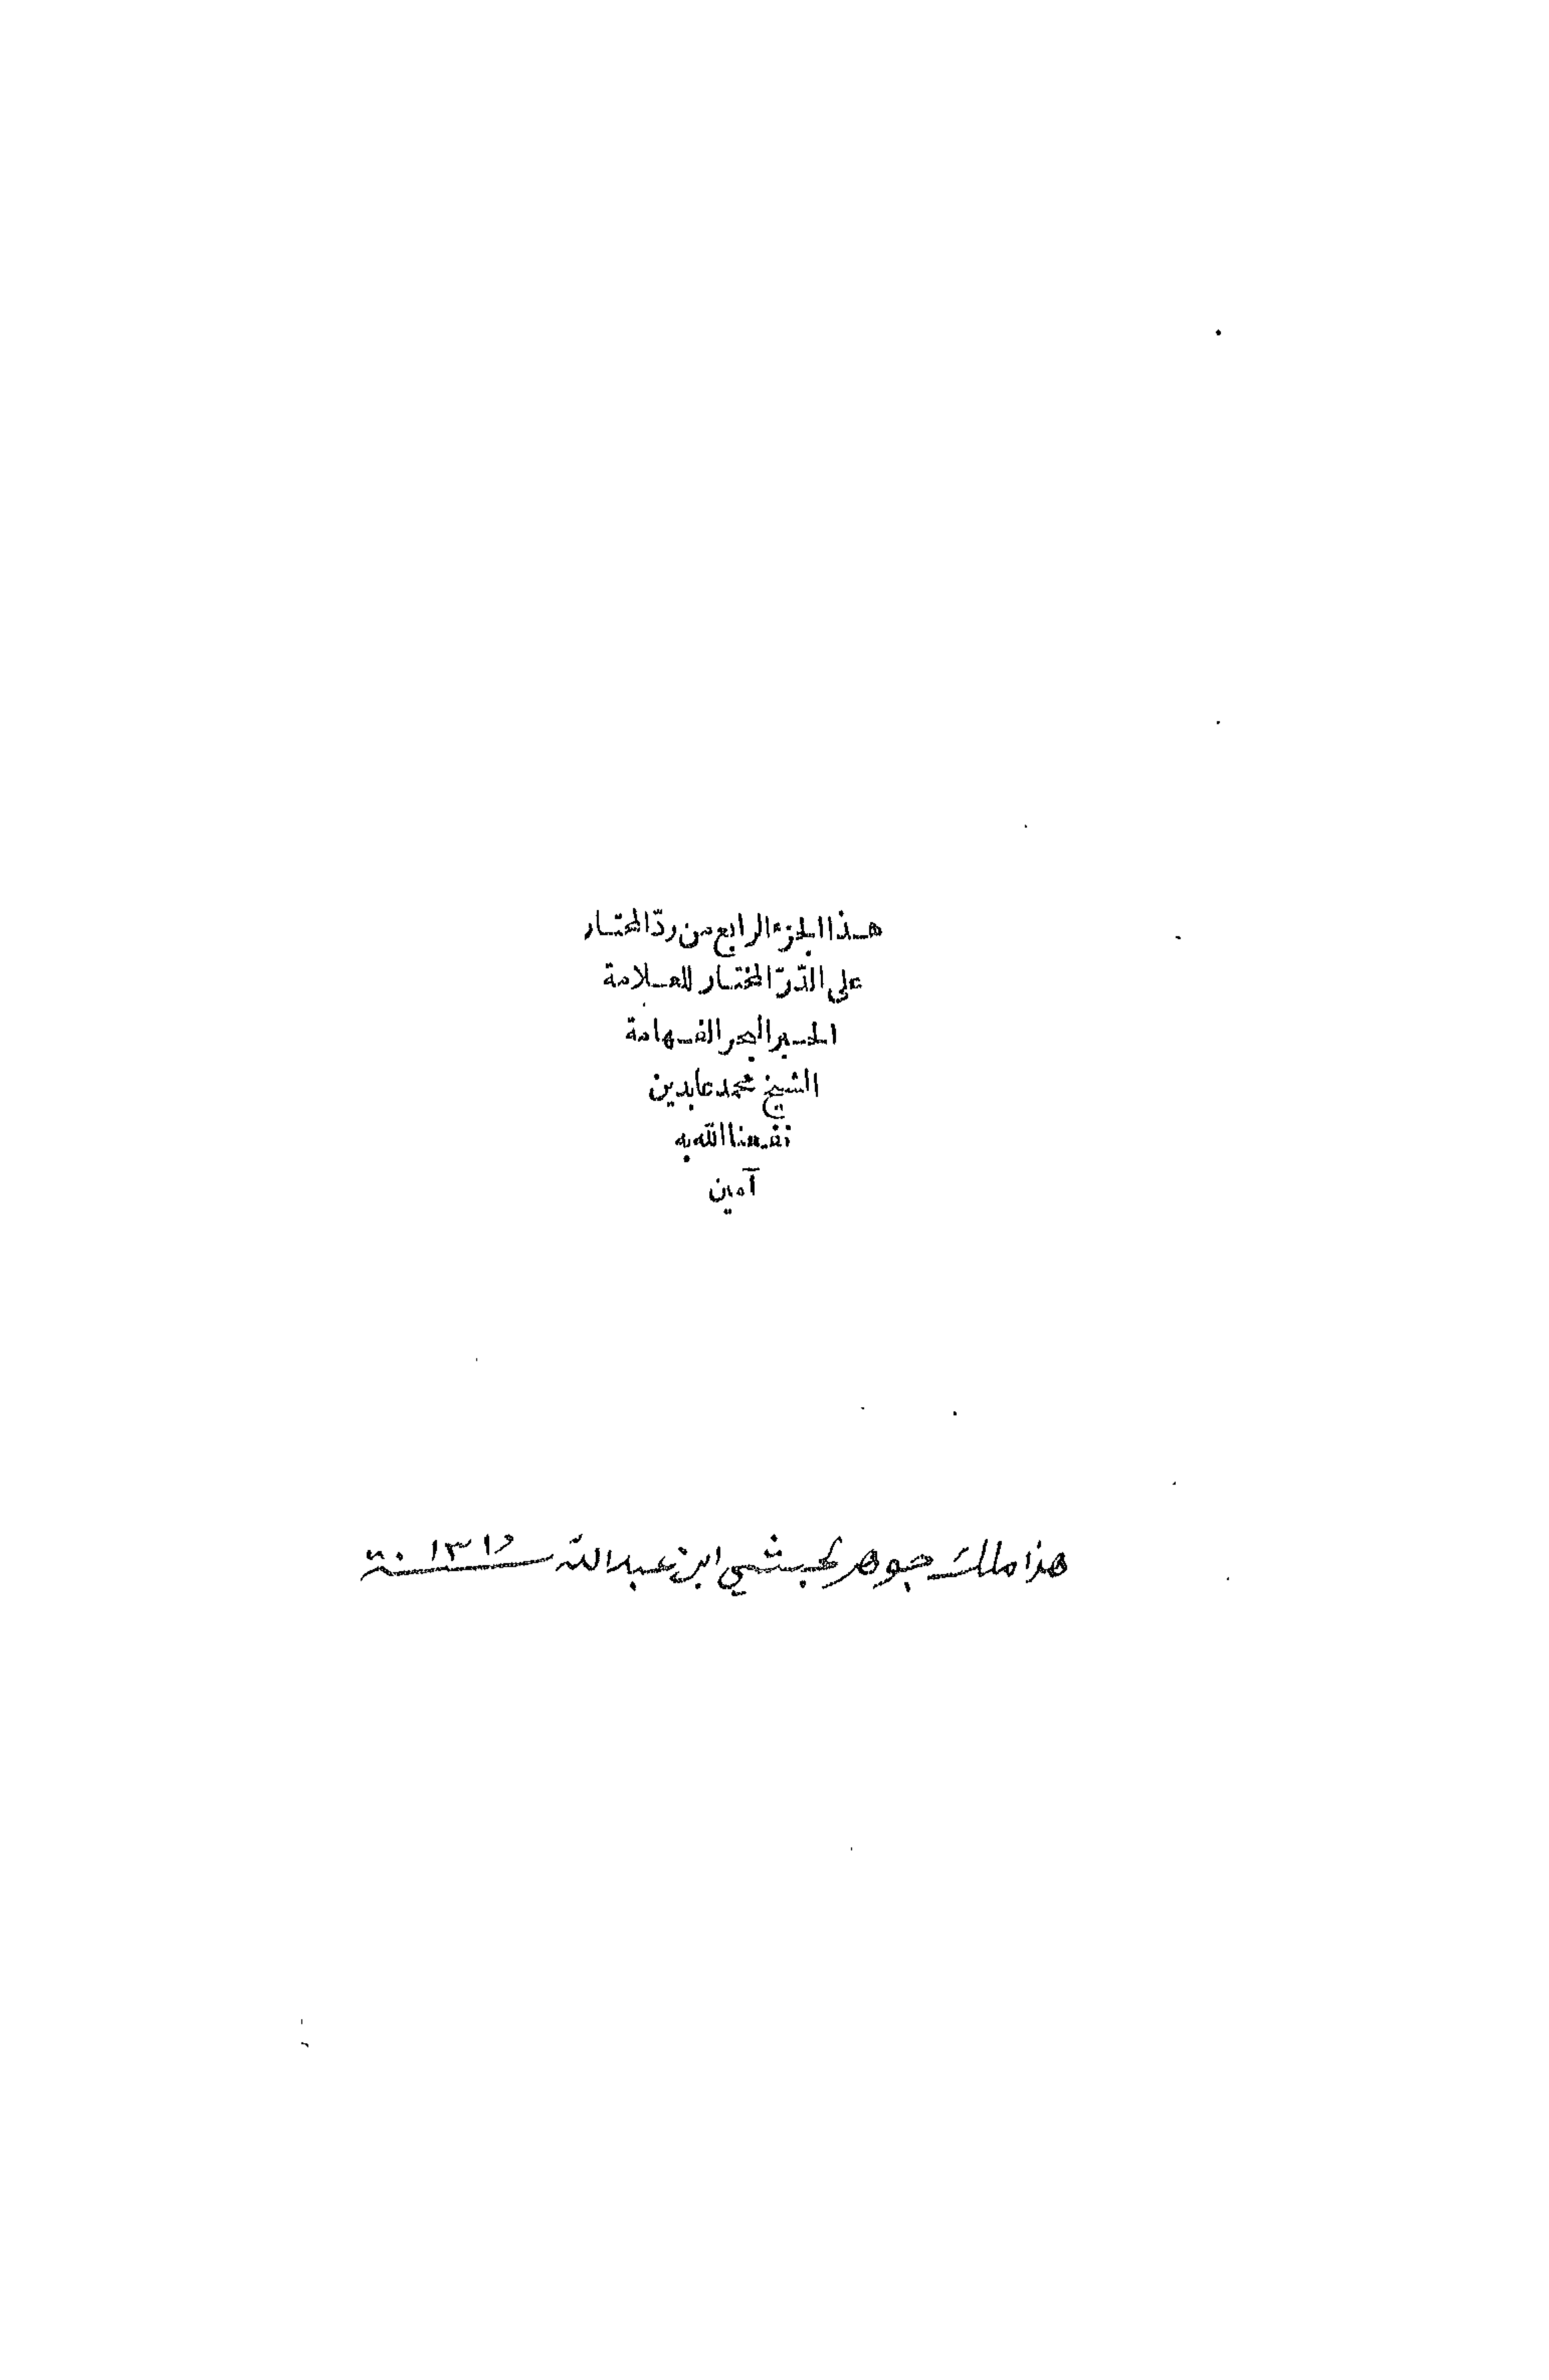 هذا الجزء الرابع من ردّ المحتار
على الدّرّ المختار للعلامة
الحبر البحر الفهامة
الشيخ محمد عابدين
نفعنا الله به
آمين
هذا ملك جوهر الحبشي ابن عبد الله سنة